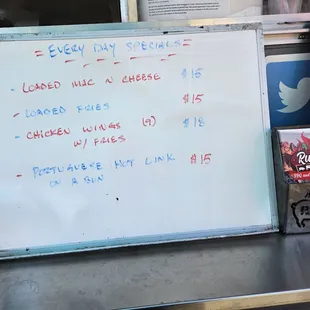 = EVERY DAY SPECIALS =
- LOADED MAC N CHEESE $16
- LOADED FRIES $15
- CHICKEN WINGS (9) $18
W/ FRIES
- PORTUGUESE HOT LINK $15
ON A BUN